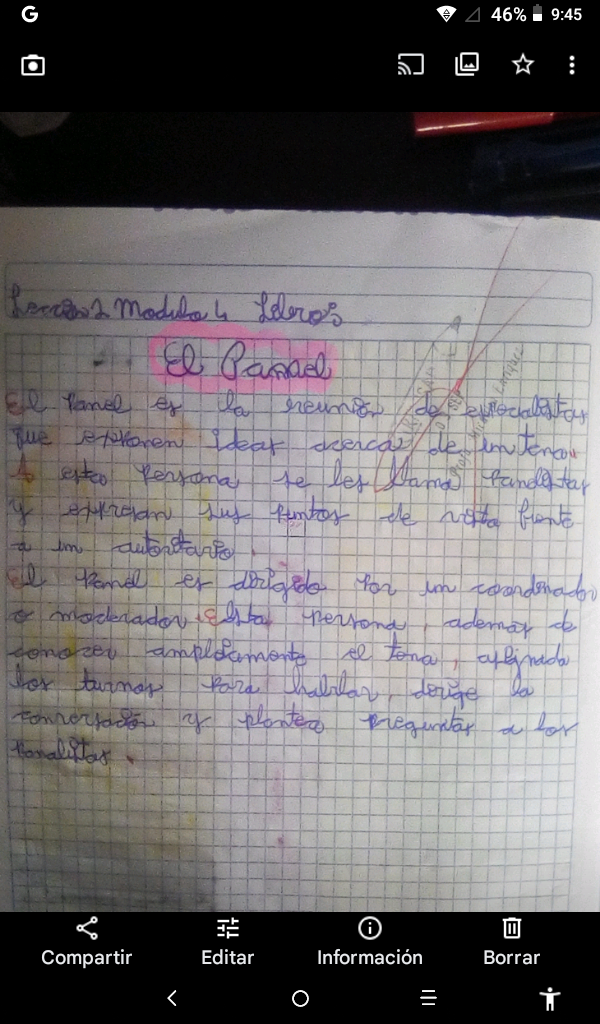 46% 9:45
El Pannel
El Panel es la reunion de especialistas
que exponen ideas acerca de un tema.
A esta persona se les llama Panelistas
y expresan sus puntos de vista frente
a un autoritario.
El Panel es dirigido por un coordinador
o moderador. Esta persona, además de
conocer ampliamente el tema, asignada
los turnos para hablar, dirige la
conversación y plantea preguntas a los
Panalistas.
Compartir Editar Información Borrar